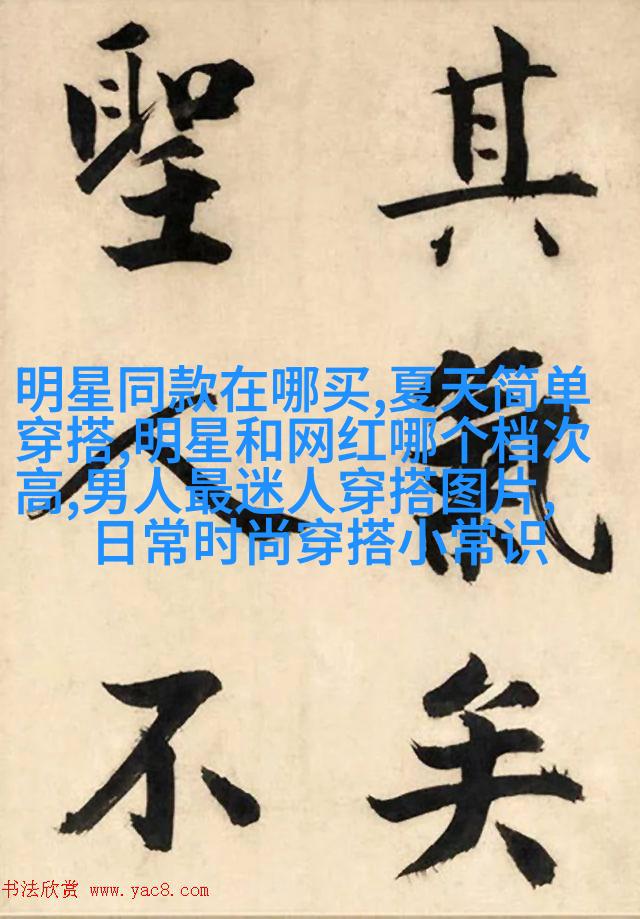 其氣矣
聖人不
明星同款在哪买,夏天简单
穿搭,明星和网红哪个档次
高,男人最迷人穿搭图片,
日常时尚穿搭小常识
书法欣赏 www.yac8.com